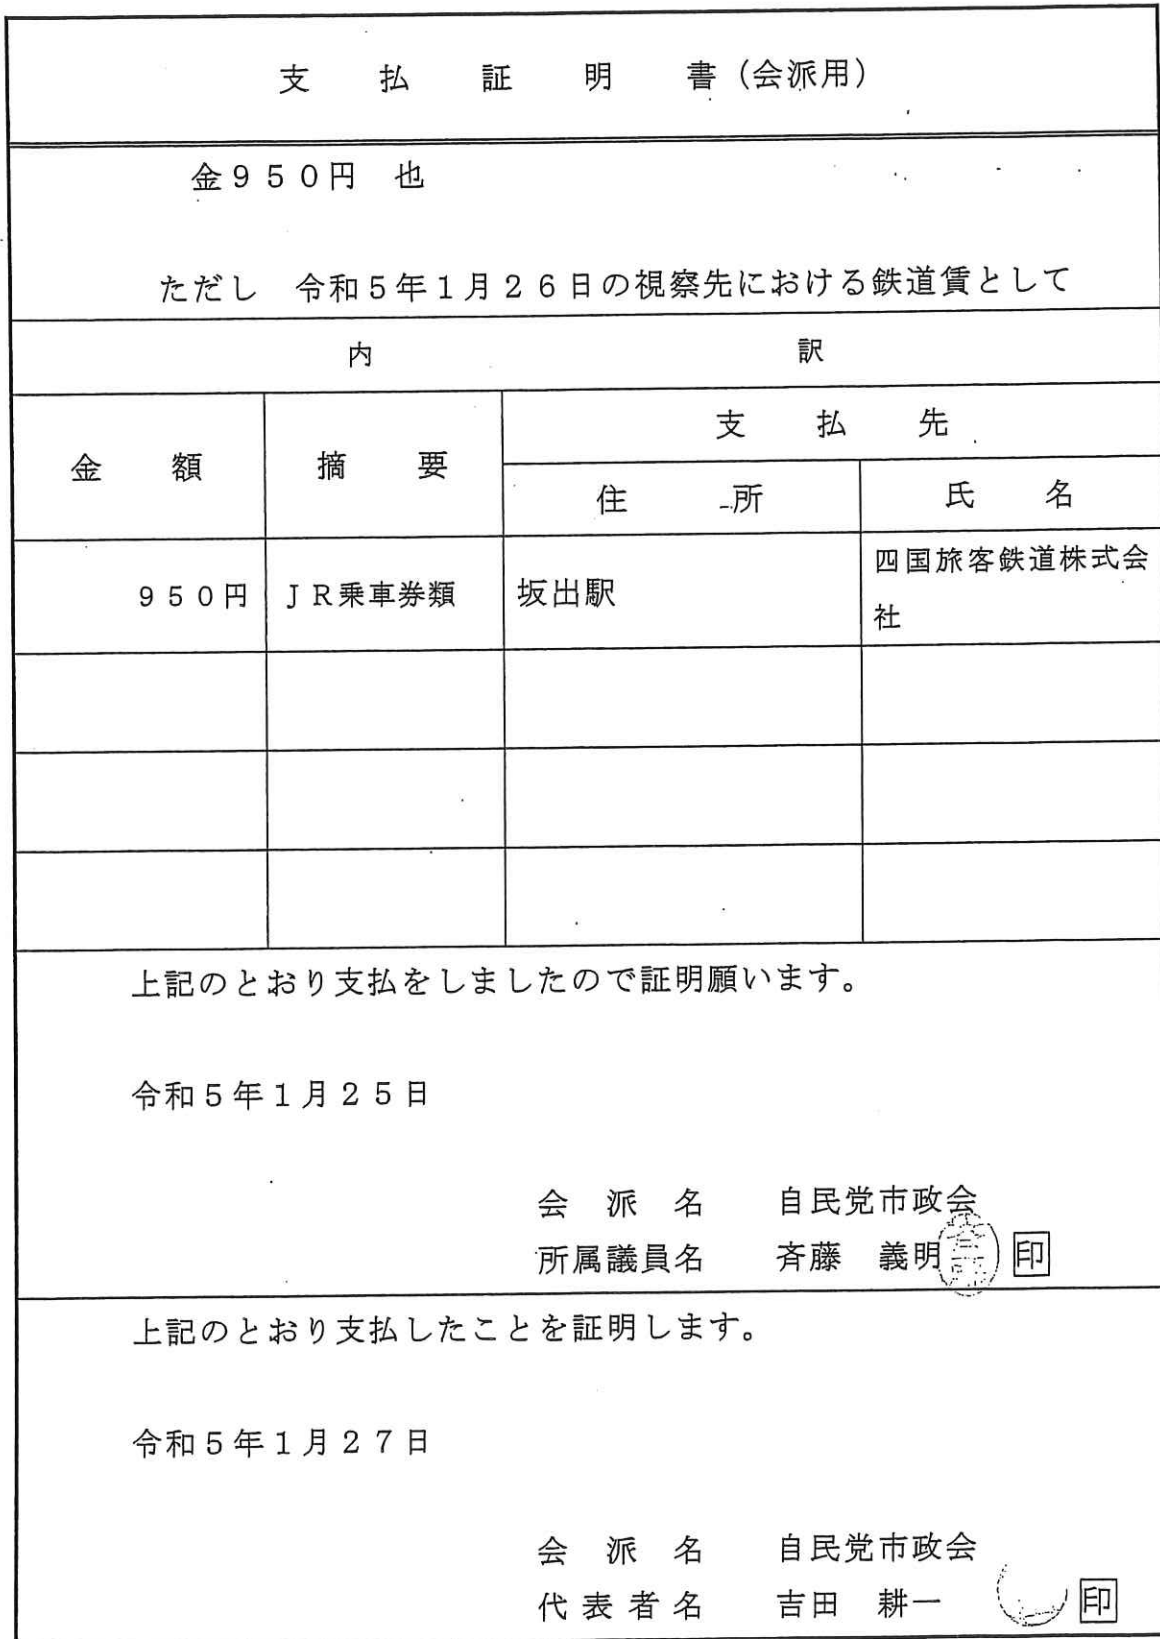 支払証明書（会派用）
金９５０円　也
ただし　令和５年１月２６日の視察先における鉄道賃として
内　訳
金　額
摘　要
支　払　先
住　所
氏　名
９５０円
ＪＲ乗車券類
坂出駅
四国旅客鉄道株式会
社
上記のとおり支払をしましたので証明願います。
令和５年１月２５日
会　派　名　　自民党市政会
所属議員名　　斉藤　義明　印
上記のとおり支払したことを証明します。
令和５年１月２７日
会　派　名　　自民党市政会
代表者名　　吉田　耕一　印